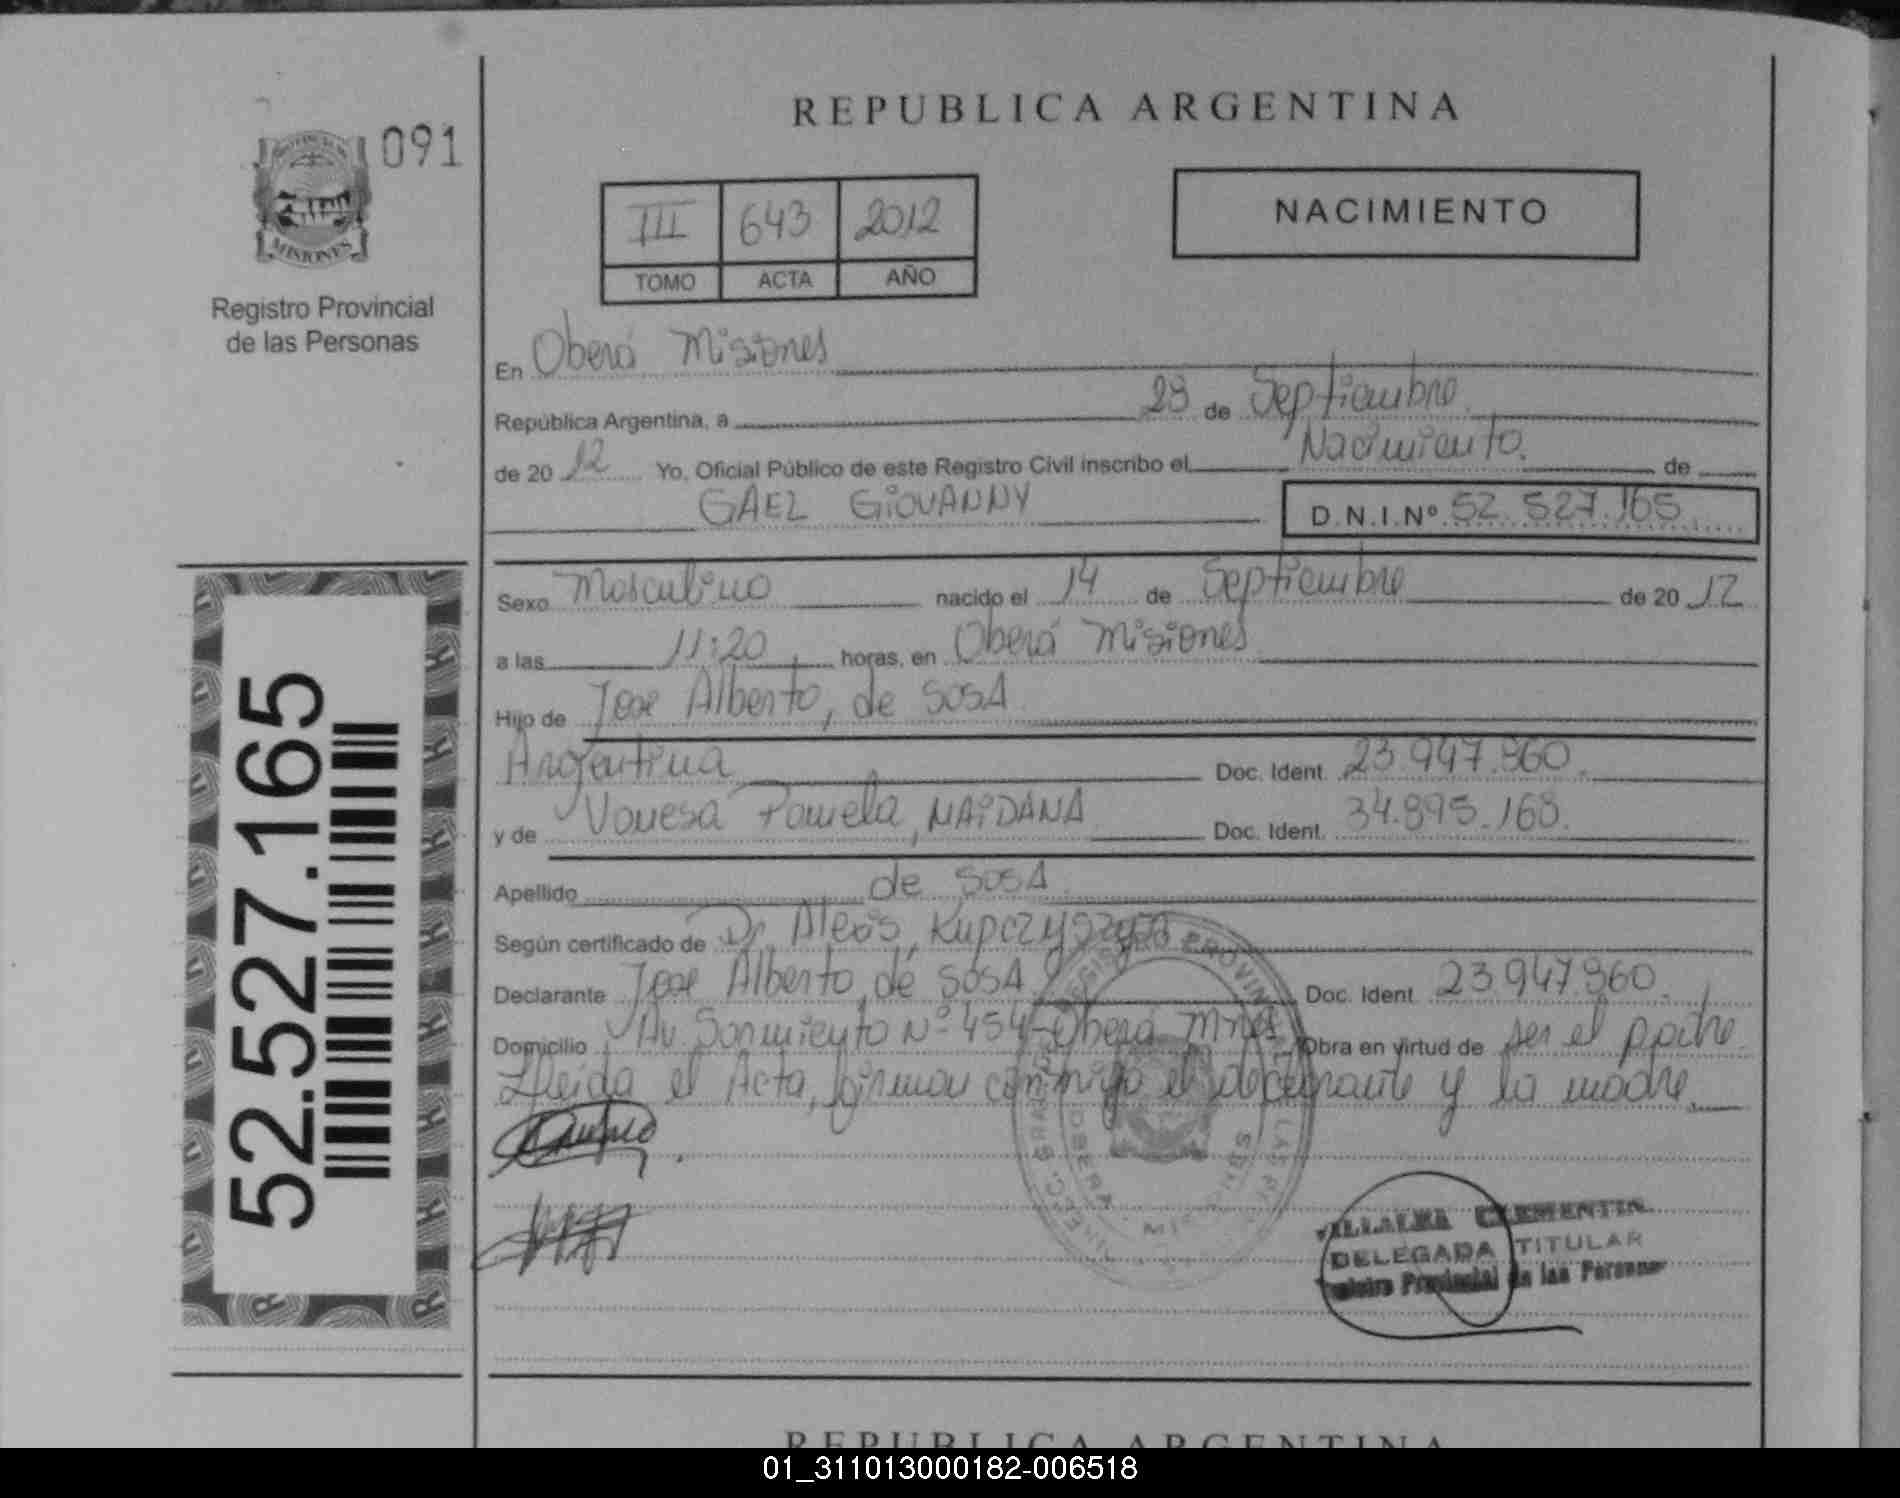 REPUBLICA ARGENTINA
091
MISIONES
Registro Provincial
de las Personas
III 643 2012
TOMO ACTA AÑO
NACIMIENTO
En Oberá Misiones
República Argentina, a 28 de Septiembre
de 20 12 Yo, Oficial Público de este Registro Civil inscribo el Nacimiento. de
GAEL GIOVANNY D.N.I.Nº 52.527.165
Sexo Masculino nacido el 14 de Septiembre de 20 12
a las 11:20 horas, en Oberá Misiones
Hijo de Jose Alberto, de SOSA
Argentina Doc. Ident. 23.947.960.
y de Vanesa Pamela, NAIDANA Doc. Ident. 34.895.168.
Apellido de SOSA
Según certificado de Dr. Alexis, Kupczyszyn
Declarante Jose Alberto, de SOSA Doc. Ident 23.947.960.
Domicilio Av Sarmiento Nº 454-Oberá Mnes Obra en virtud de ser el padre.
Lleida el Acta, firman conmigo el declarante y la madre.
52.527.165
REGISTRO PROVINCIAL LAS
OBERA - MISIONES
VILLALBA CLEMENTIN
DELEGADA TITULAR
Registro Provincial de las Personas
REPUBLICA ARGENTINA
01_311013000182-006518